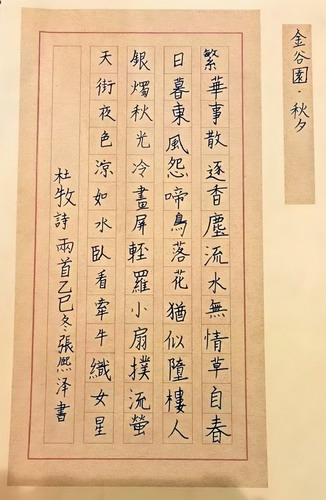 金谷園·秋夕
繁華事散逐香塵流水無情草自春
日暮東風怨啼鳥落花猶似墮樓人
銀燭秋光冷畫屏輕羅小扇撲流螢
天街夜色涼如水臥看牽牛織女星
杜牧詩兩首乙巳冬張熙泽書